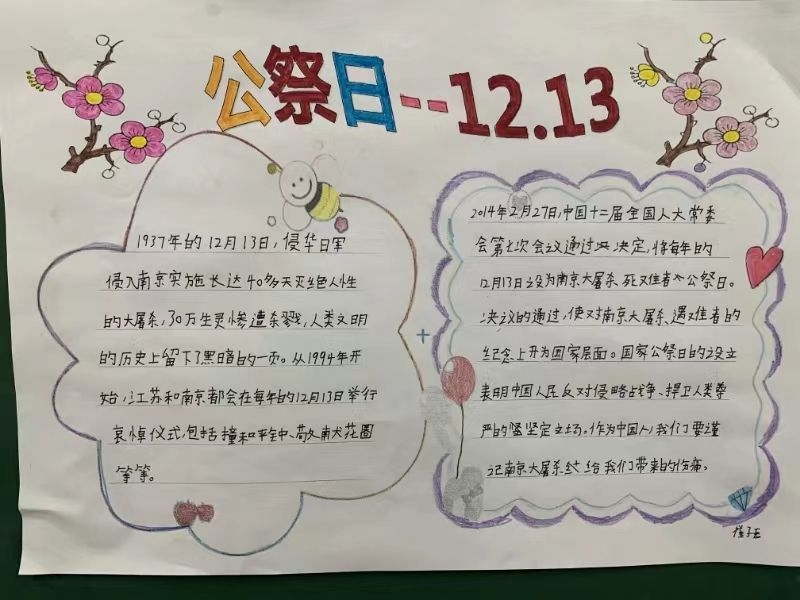 公祭日--12.13
1937年的12月13日,侵华日军
侵入南京实施长达40多天灭绝人性
的大屠杀,30万生灵惨遭杀戮,人类文明
的历史上留下了黑暗的一页。从1994年开
始,江苏和南京都会在每年的12月13日举行
哀悼仪式,包括撞和平钟、敬献花圈
等等。
2014年2月27日,中国十二届全国人大常委
会第七次会议通过决定,将每年的
12月13日设为南京大屠杀死难者公祭日。
决议的通过,使对南京大屠杀遇难者的
纪念上升为国家层面。国家公祭日的设立
表明中国人民反对侵略战争、捍卫人类尊
严的坚定立场。作为中国人,我们要谨
记南京大屠杀给我们带来的伤痛。